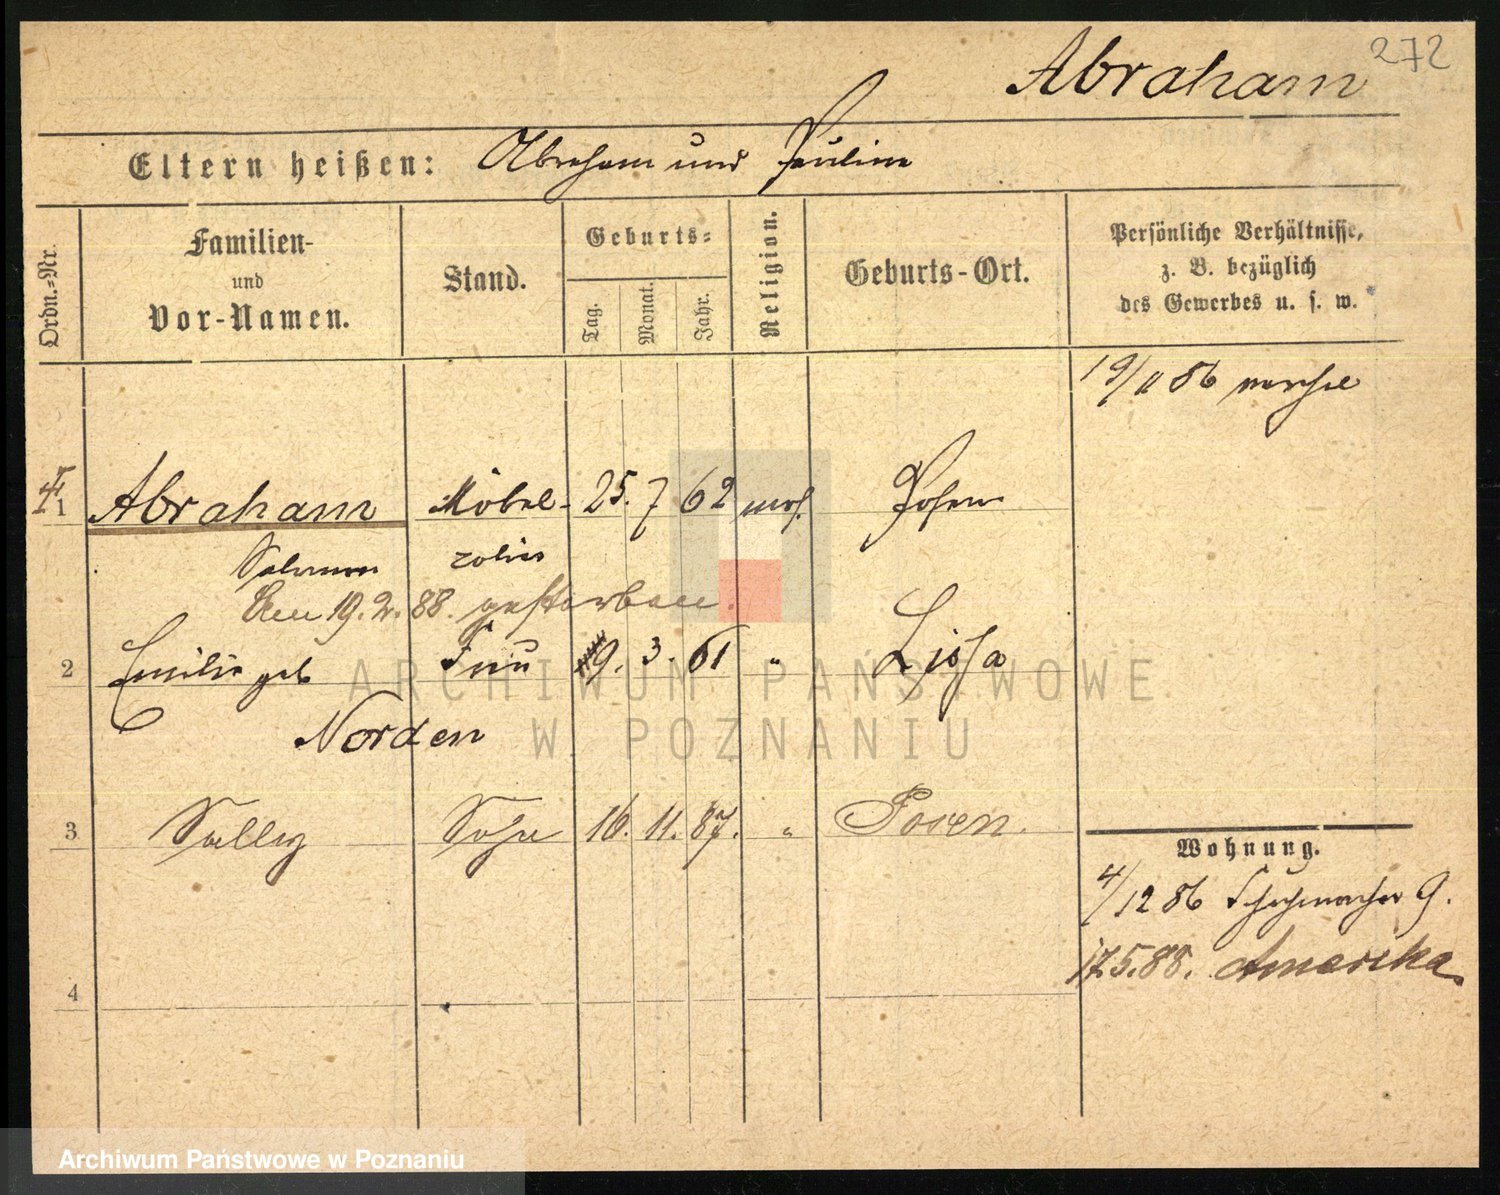 272
Abraham
Eltern heißen: Abraham und Pauline
Ordn.-Nr.
Familien-
und
Vor-Namen.
Stand.
Geburts-
Tag.
Monat.
Jahr.
Religion.
Geburts-Ort.
Persönliche Verhältnisse,
z. B. bezüglich
des Gewerbes u. s. w.
19/11 86
1 Abraham Möbel- 25. 7 62 mos. Posen
Salomon
Am 19. 2. 88. gestorben.
2 Emilie geb Frau 9. 3. 61 " Lissa
Norden
3 Sally Sohn 16. 11. 87. " Posen.
Wohnung.
4/12 86 Schuhmacher 9.
17.5.88. Amerika
4
ARCHIWUM PAŃSTWOWE
W POZNANIU
Archiwum Państwowe w Poznaniu